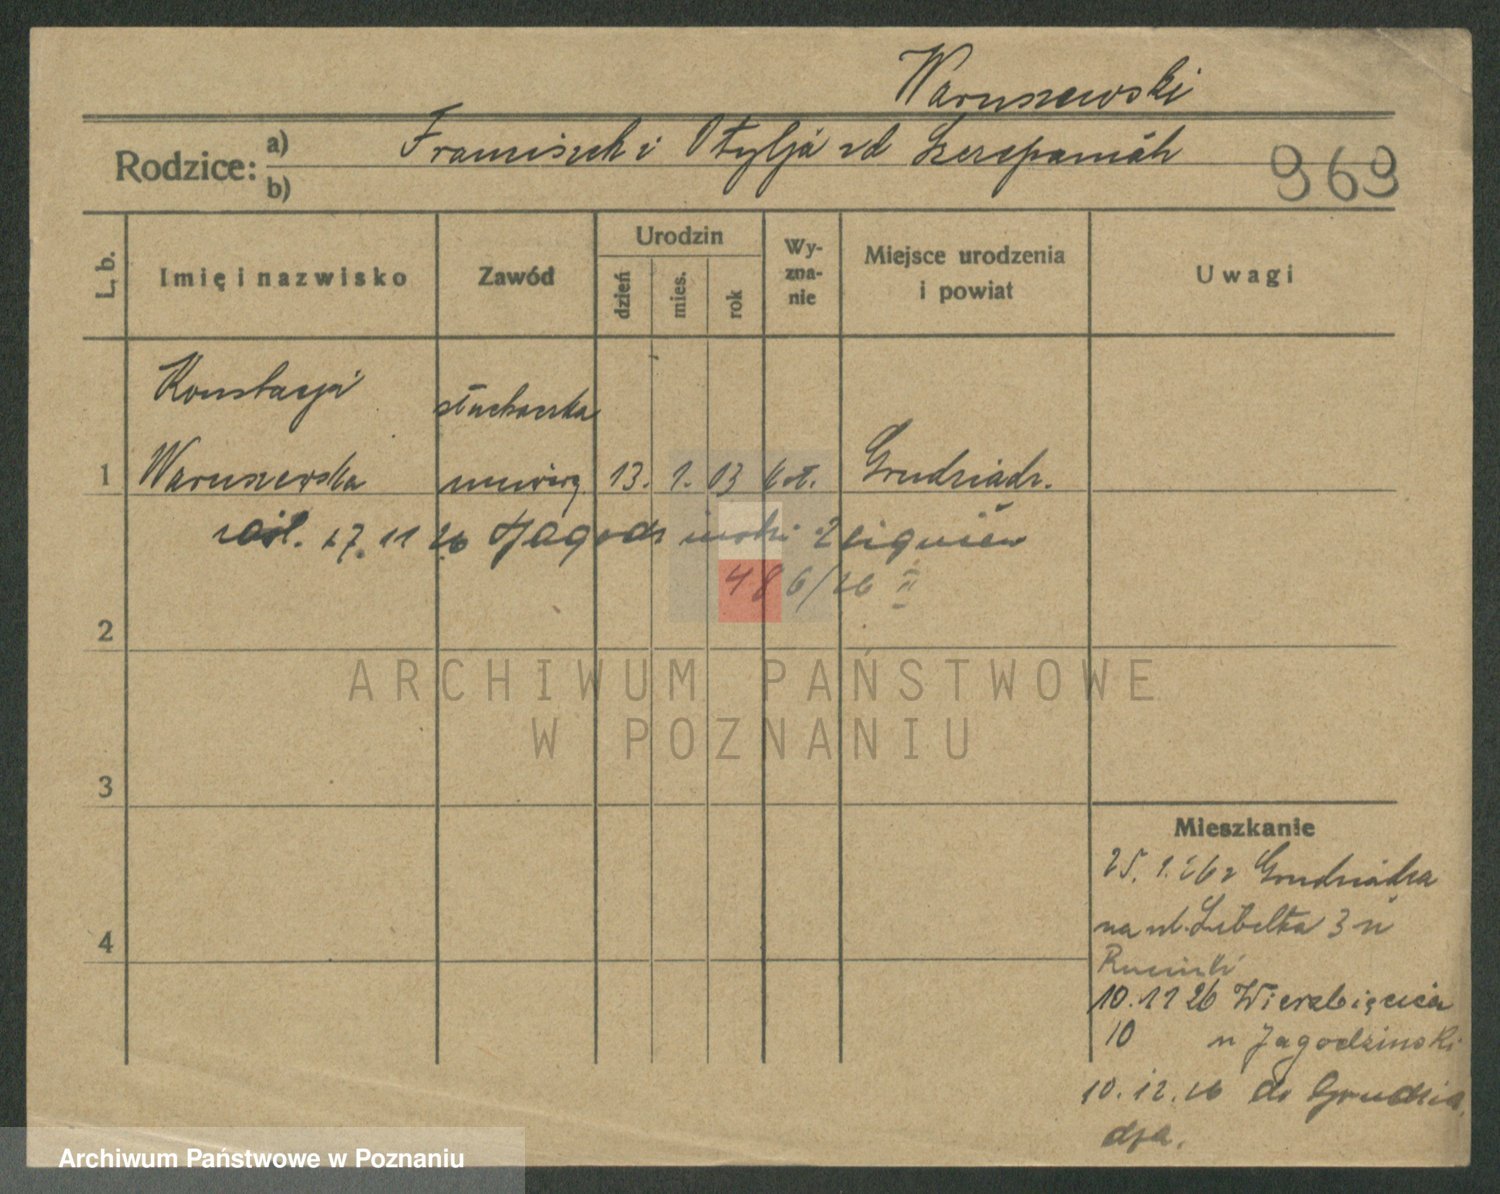 Waruszewski
Rodzice: a) b)
Franciszek i Otylja zd Szczepaniak
969
L. b.
Imię i nazwisko
Zawód
Urodzin
dzień
mies.
rok
Wy-
zna-
nie
Miejsce urodzenia
i powiat
Uwagi
Konstacja słuchaczka
1 Waruszewska uniwerz. 13. 1. 03 kat. Grudziadz.
zaśl. 27. 11 26 Jagodziński Zbigniew
486/26 II
2
3
4
Mieszkanie
25. 1. 26 z Grudziądza
na ul. Libelta 3 u
Rucinski
10. 11 26 Wierzbięcice
10 u Jagodzinski
10. 12. 26 do Grudzia
dza.
ARCHIWUM PAŃSTWOWE
W POZNANIU
Archiwum Państwowe w Poznaniu